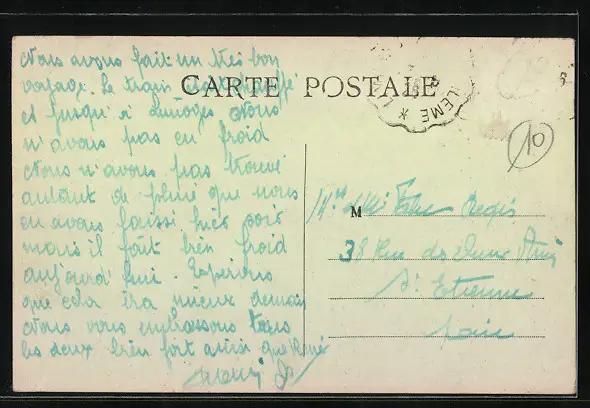 Nous avons fait un très bon
voyage. Le train
et jusqu'à Limoges. Nous
n'avons pas eu froid
Nous n'avons pas trouvé
autant de pluie que nous
en avons laissé hier soir
mais il fait bien froid
aujourd'hui. Espérons
que cela ira mieux demain
Nous vous embrassons tous
les deux bien fort ainsi que René
CARTE POSTALE
LEME
10
M
38 Rue des Deux Amis
St Etienne
Loire